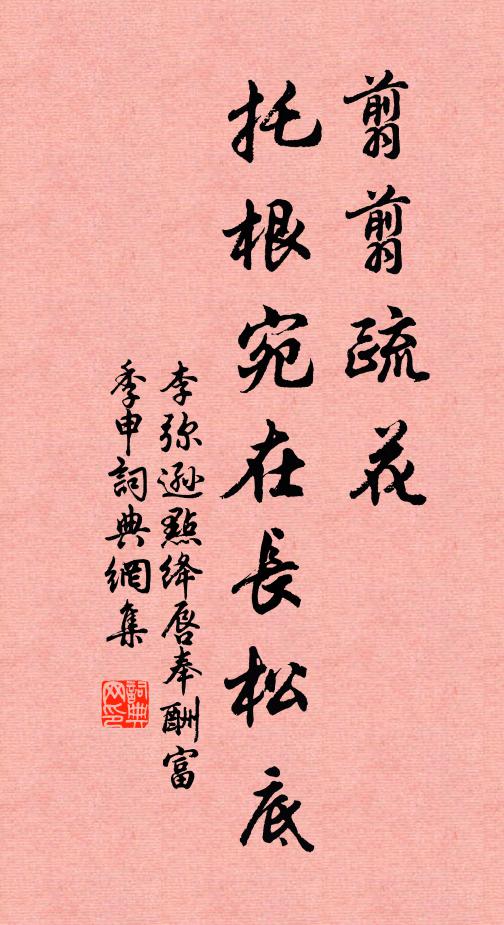 翦翦疏花
托根宛在長松底
李弥遜點絳唇奉酬富
季申詞典網集
詞典
网印